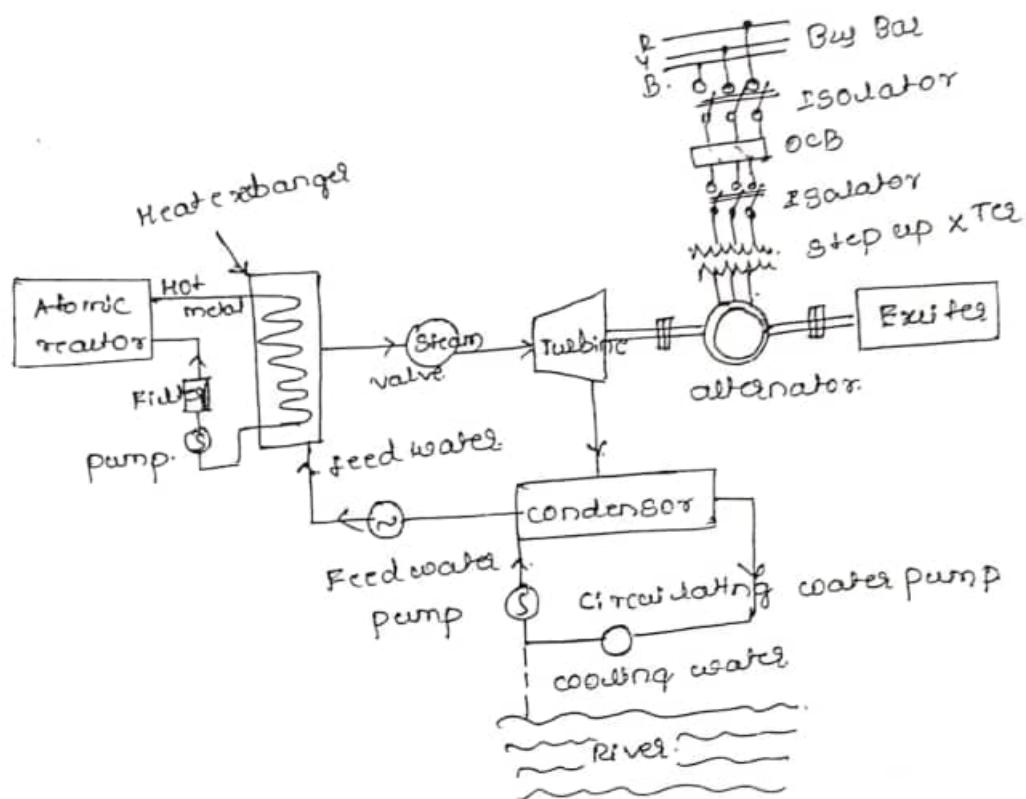 R
Y
B.
Bus Bar
Isoulator
OCB
Isalator
Step up x Ter
Heat exbanger
Hot
metal
Atomic
reactor
Filter
pump.
Steam
valve
Turbine
Exciter
alternator.
feed water
condensor
Feed water
pump
circulating water pump
cooling water
River.